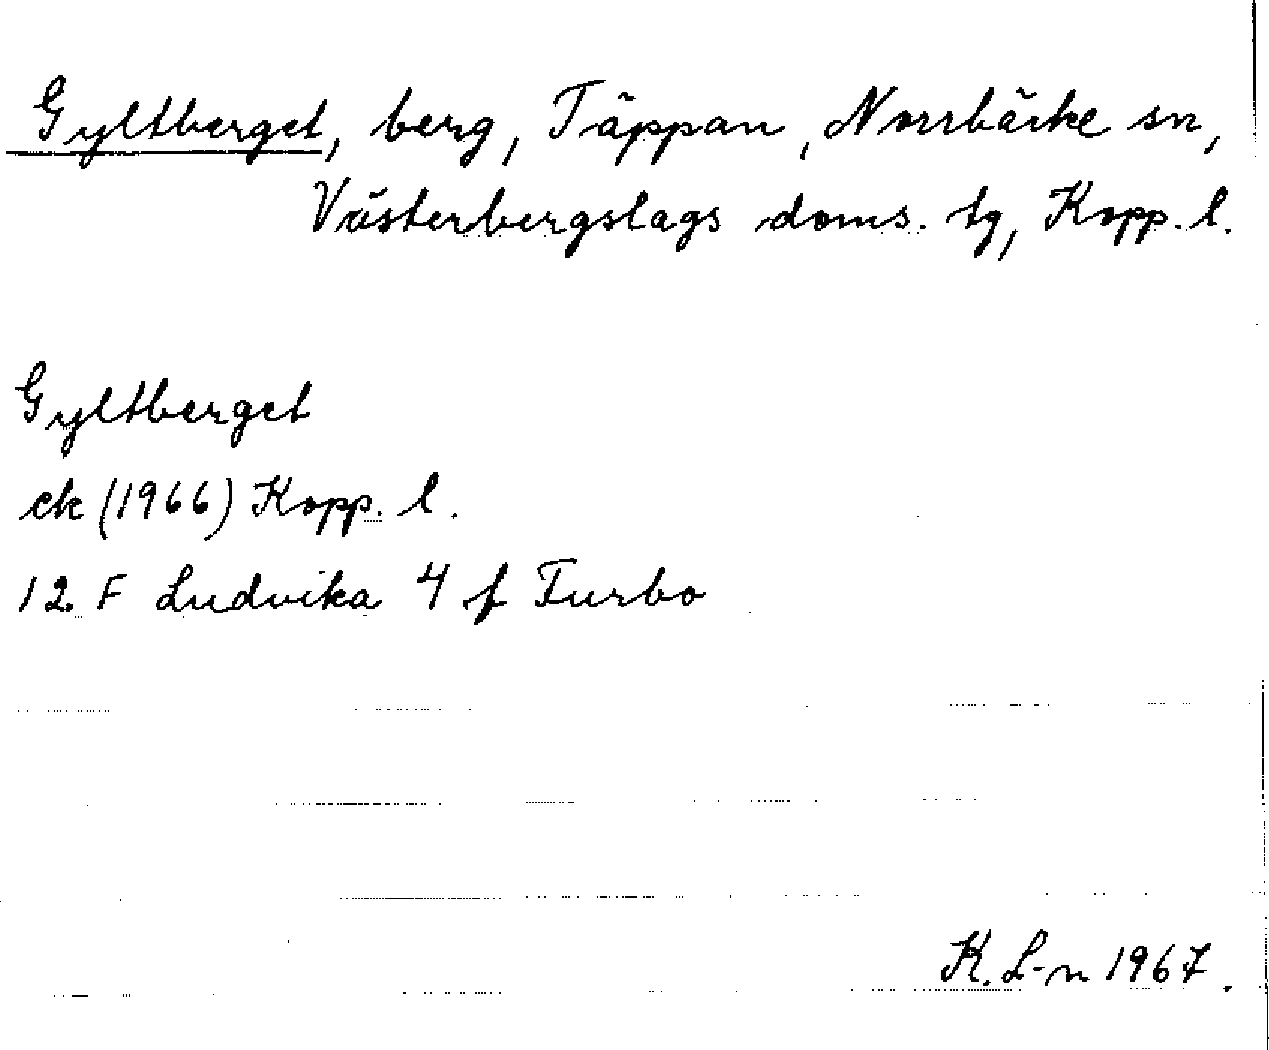 Gyltberget, berg, Täppan, Norrbärke sn,
Västerbergslags doms. tg, Kopp. l.
Gyltberget
ek (1966) Kopp. l.
12 F Ludvika 4 f Turbo
K. L-n 1967.